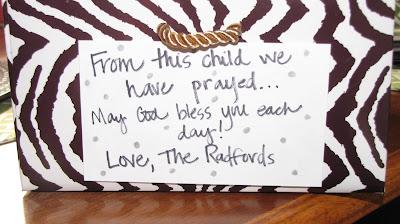 From this child we
have prayed...
May God bless you each
day!
Love, The Radfords